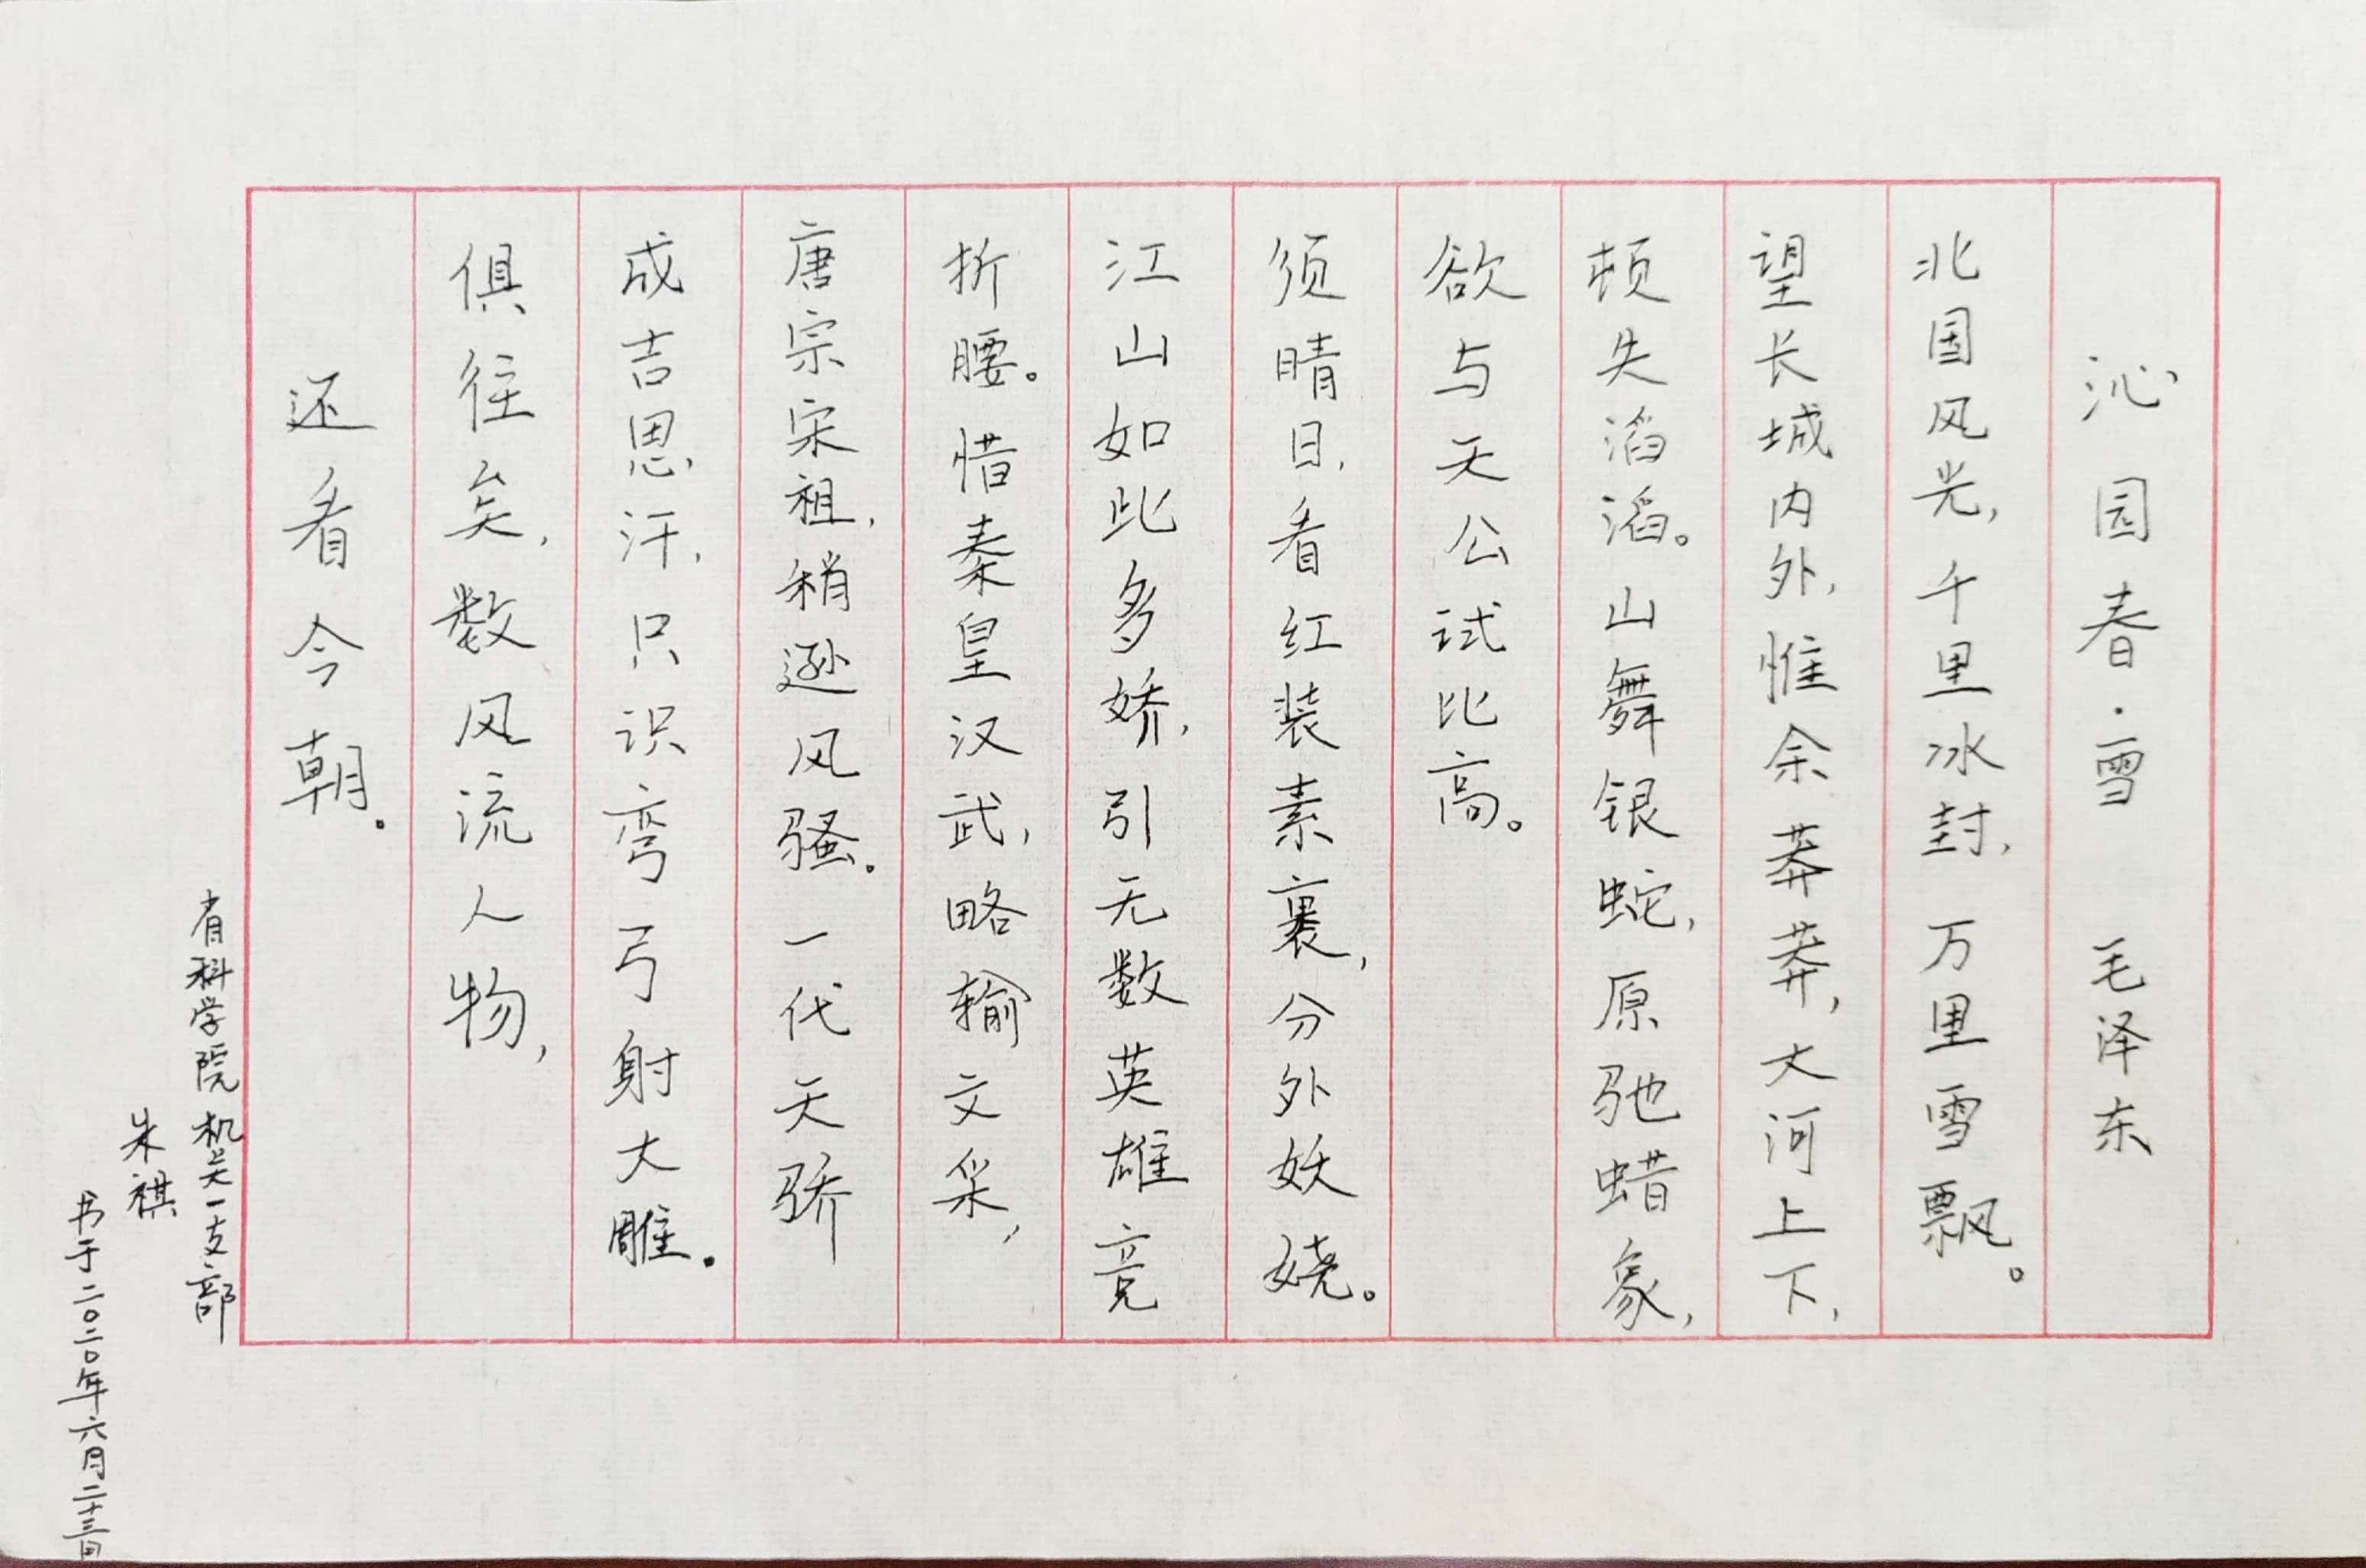 沁园春·雪 毛泽东
北国风光,千里冰封,万里雪飘。
望长城内外,惟余莽莽,大河上下,
顿失滔滔。山舞银蛇,原驰蜡象,
欲与天公试比高。
须晴日,看红装素裹,分外妖娆。
江山如此多娇,引无数英雄竞
折腰。惜秦皇汉武,略输文采,
唐宗宋祖,稍逊风骚。一代天骄
成吉思汗,只识弯弓射大雕。
俱往矣,数风流人物,
还看今朝。
省科学院机关一支部
朱祺
书于二〇二〇年六月二十三日